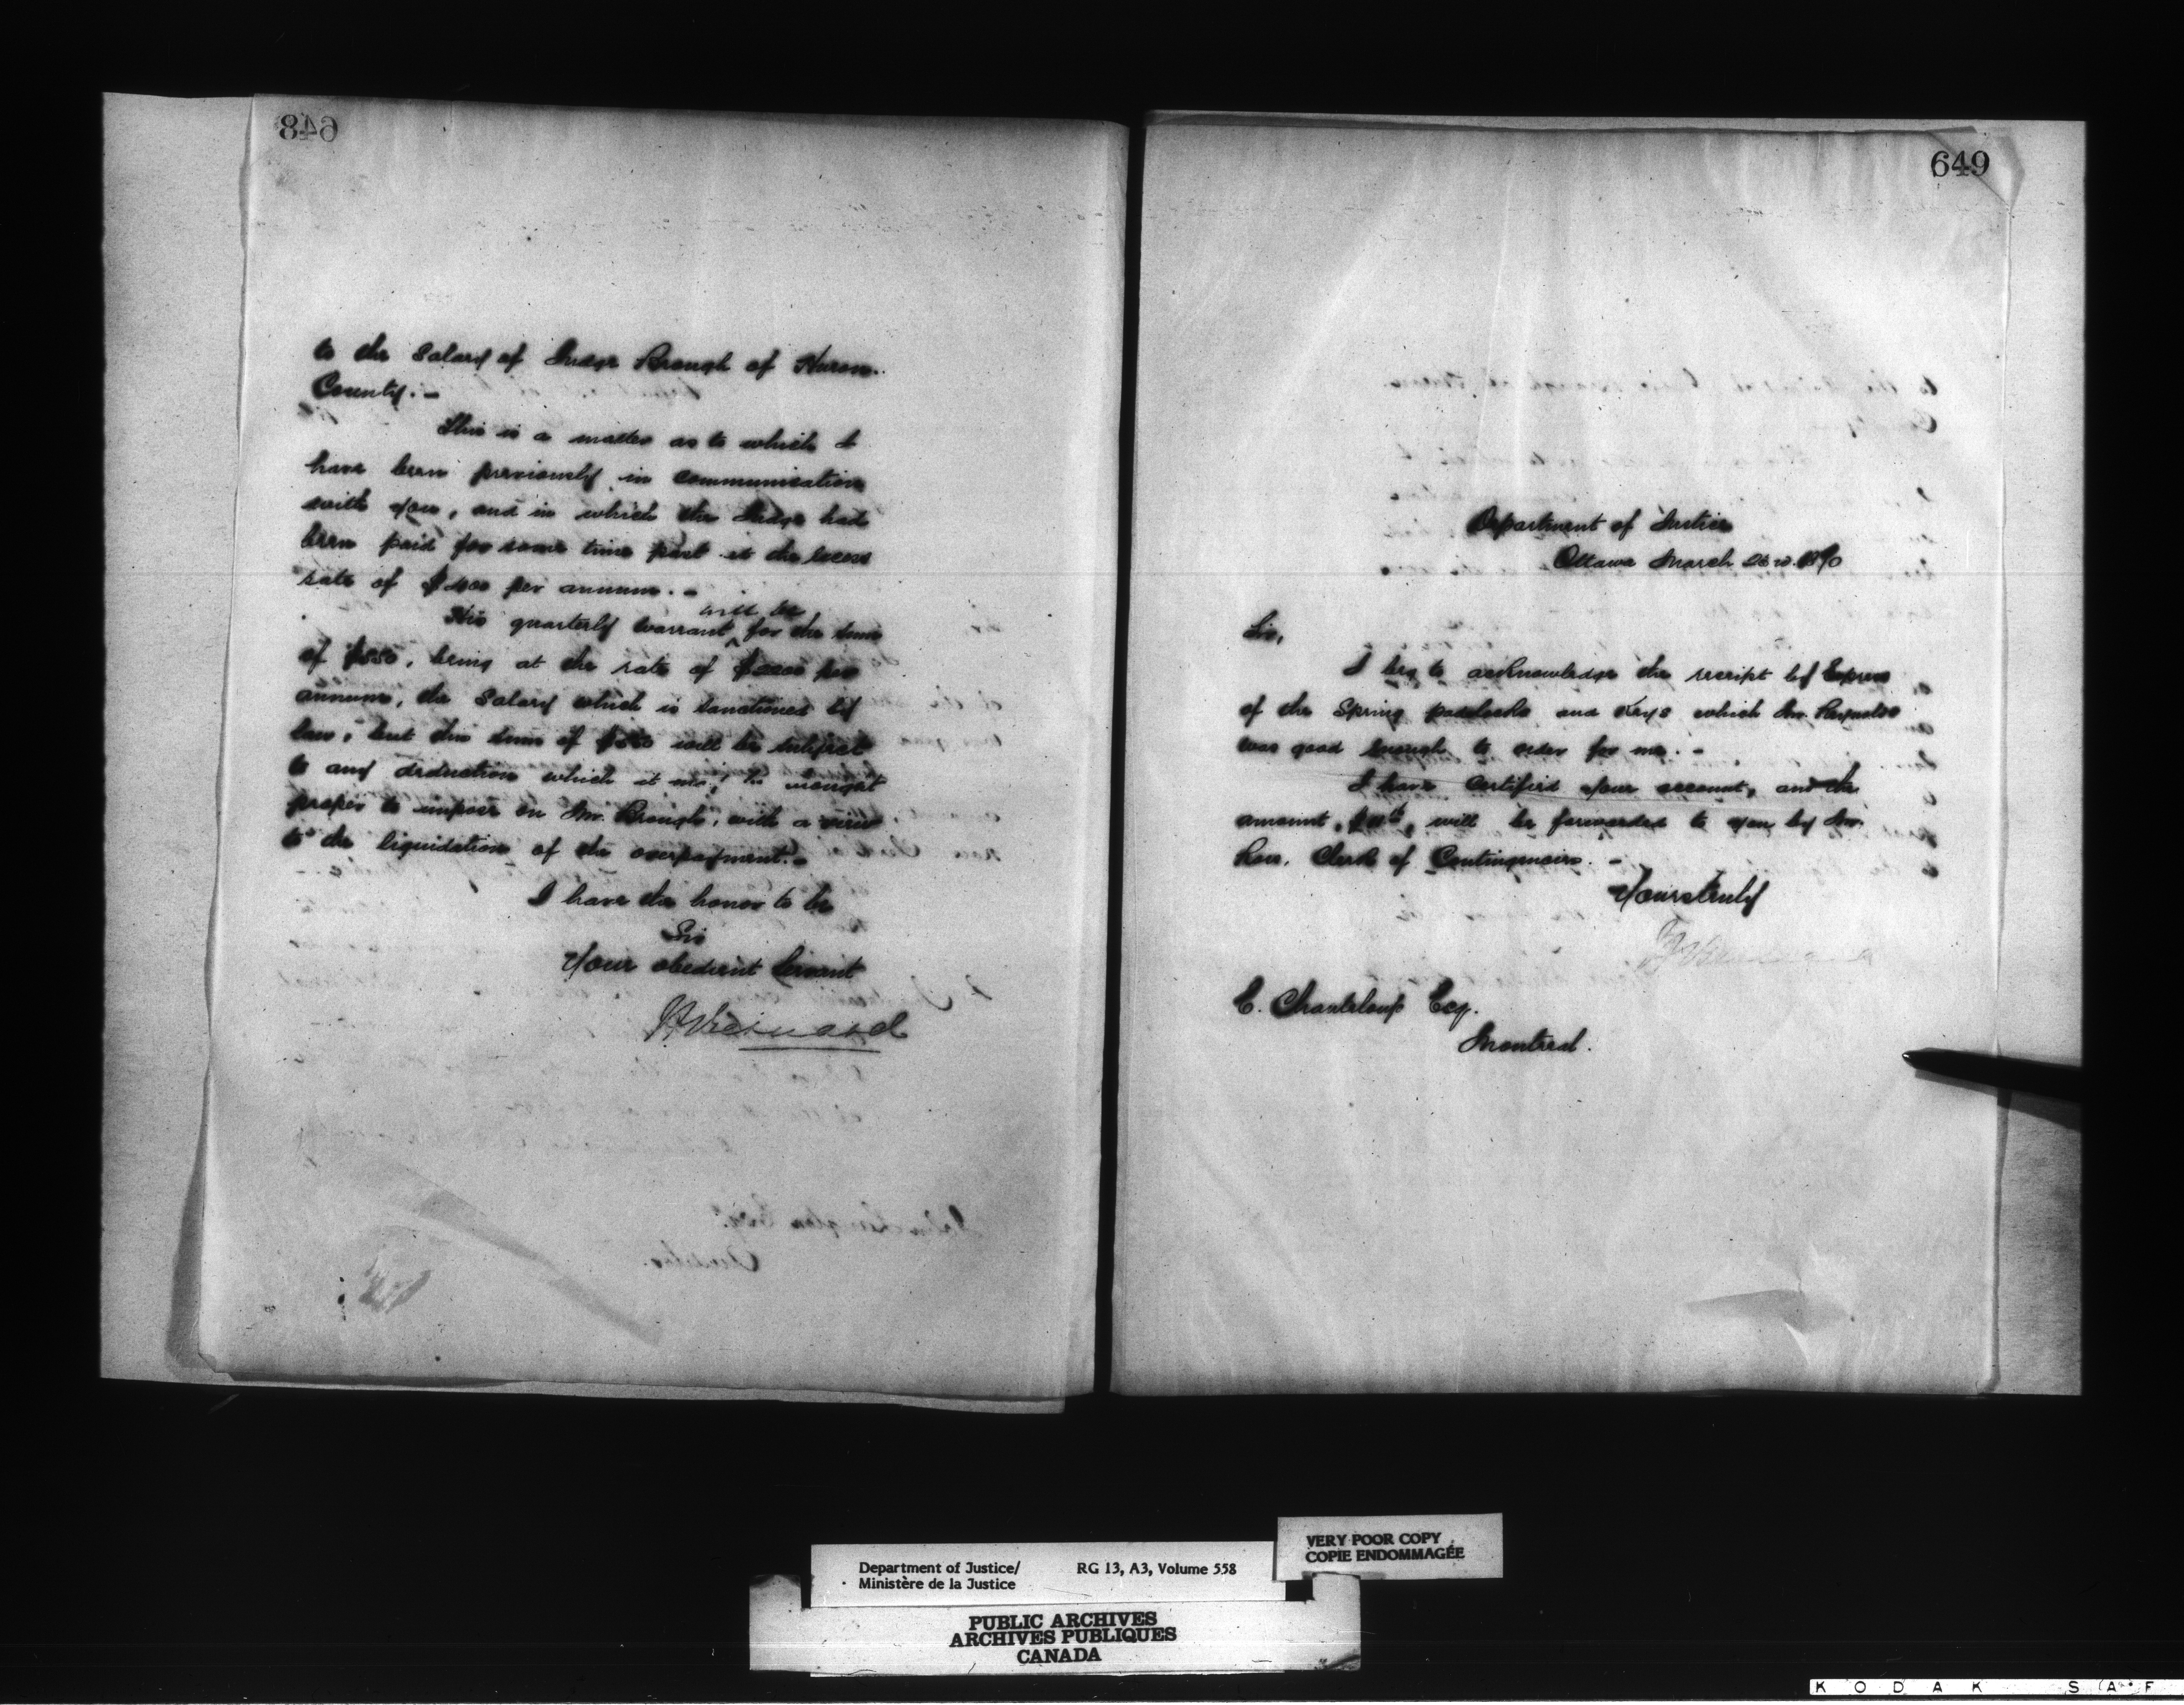 648
to the Salary of Judge Brough of Huron
County. -
This is a matter as to which I
have been previously in communication
with you, and in which the Judge had
been paid for some time past at the excess
rate of per annum. -
His quarterly warrant will be for the sum
of being at the rate of per
annum, the Salary which is sanctioned by
law; but this sum of will be subject
to any deduction which it may be thought
proper to impose on Mr. Brough, with a view
to the liquidation of the overpayment. -
I have the honor to be
Sir
Your obedient Servant
649
Department of Justice
Ottawa March 1870
Sir,
I beg to acknowledge the receipt by Express
of the Spring padlocks and Keys which Mr. Reynolds
was good enough to order for me. -
I have certified your account, and the
amount, will be forwarded to you by Mr.
Clerk of Contingencies. -
Yours truly
E. Chanteloup Esq.
Montreal.
John Langton Esq.
Auditor.
Department of Justice/ RG 13, A3, Volume 558
Ministère de la Justice
VERY POOR COPY
COPIE ENDOMMAGÉE
PUBLIC ARCHIVES
ARCHIVES PUBLIQUES
CANADA
KODAK SAF